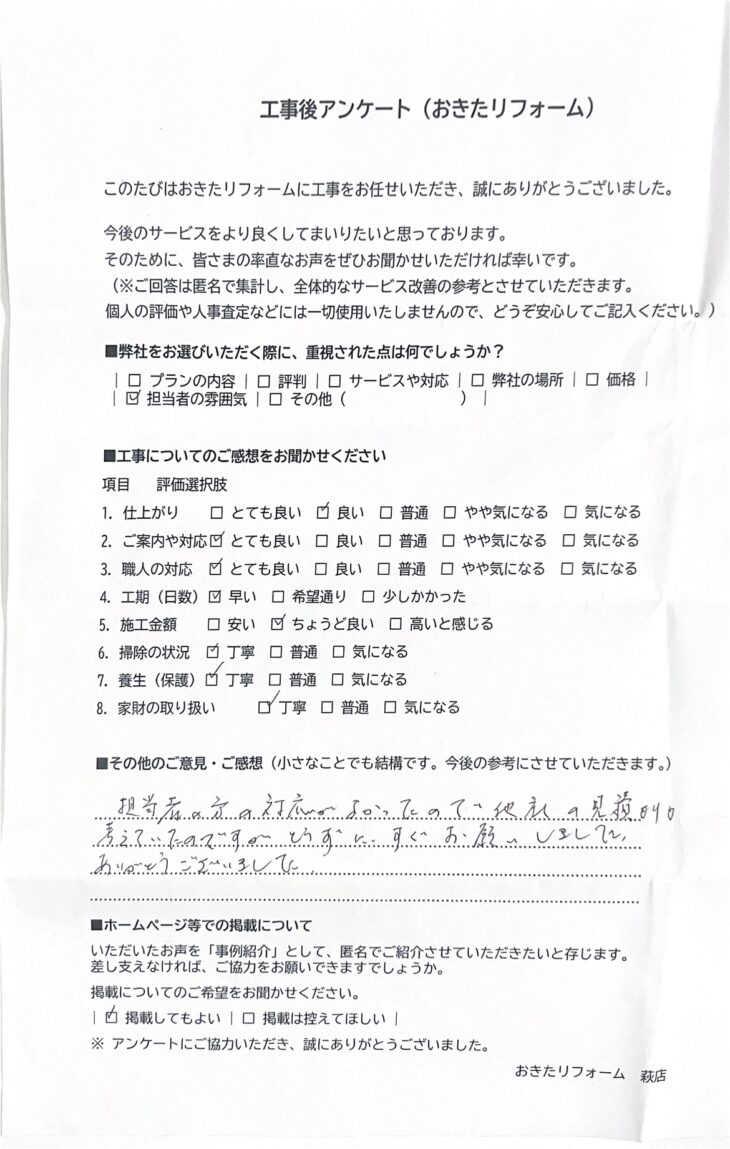 工事後アンケート（おきたリフォーム）
このたびはおきたリフォームに工事をお任せいただき、誠にありがとうございました。
今後のサービスをより良くしてまいりたいと思っております。
そのために、皆さまの率直なお声をぜひお聞かせいただければ幸いです。
（※ご回答は匿名で集計し、全体的なサービス改善の参考とさせていただきます。
個人の評価や人事査定などには一切使用いたしませんので、どうぞ安心してご記入ください。）
■弊社をお選びいただく際に、重視された点は何でしょうか？
| ☐ プランの内容 | ☐ 評判 | ☐ サービスや対応 | ☐ 弊社の場所 | ☐ 価格 |
| ☑ 担当者の雰囲気 | ☐ その他（ ） |
■工事についてのご感想をお聞かせください
項目 評価選択肢
1. 仕上がり ☐ とても良い ☑ 良い ☐ 普通 ☐ やや気になる ☐ 気になる
2. ご案内や対応 ☑ とても良い ☐ 良い ☐ 普通 ☐ やや気になる ☐ 気になる
3. 職人の対応 ☑ とても良い ☐ 良い ☐ 普通 ☐ やや気になる ☐ 気になる
4. 工期（日数） ☑ 早い ☐ 希望通り ☐ 少しかかった
5. 施工金額 ☐ 安い ☑ ちょうど良い ☐ 高いと感じる
6. 掃除の状況 ☑ 丁寧 ☐ 普通 ☐ 気になる
7. 養生（保護） ☑ 丁寧 ☐ 普通 ☐気になる
8. 家財の取り扱い ☑ 丁寧 ☐ 普通 ☐ 気になる
■その他のご意見・ご感想（小さなことでも結構です。今後の参考にさせていただきます。）
担当者の方の対応がよかったので他社の見積りも
考えていたのですが とらずに すぐ お願いしました。
ありがとうございました。
■ホームページ等での掲載について
いただいたお声を「事例紹介」として、匿名でご紹介させていただきたいと存じます。
差し支えなければ、ご協力をお願いできますでしょうか。
掲載についてのご希望をお聞かせください。
| ☑ 掲載してもよい | ☐ 掲載は控えてほしい |
※ アンケートにご協力いただき、誠にありがとうございました。
おきたリフォーム 萩店